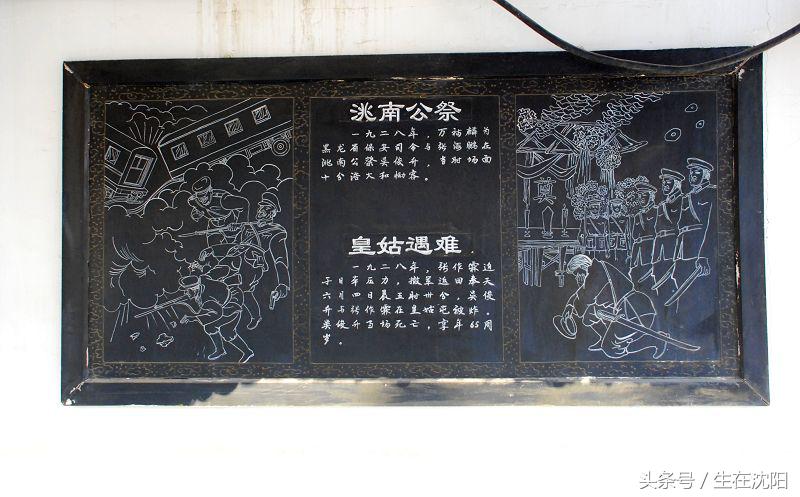 洮南公祭
一九二八年，万福麟为
黑龙省保安司令与张海鹏在
洮南公祭吴俊升，当时场面
十分浩大和容。
皇姑遇难
一九二八年，张作霖迫
于日本压力，撤军退回奉天
六月四日晨五时卅分，吴俊
升与张作霖在皇姑屯被炸，
吴俊升当场死亡，享年65周
岁。
奠
头条号／生在沈阳